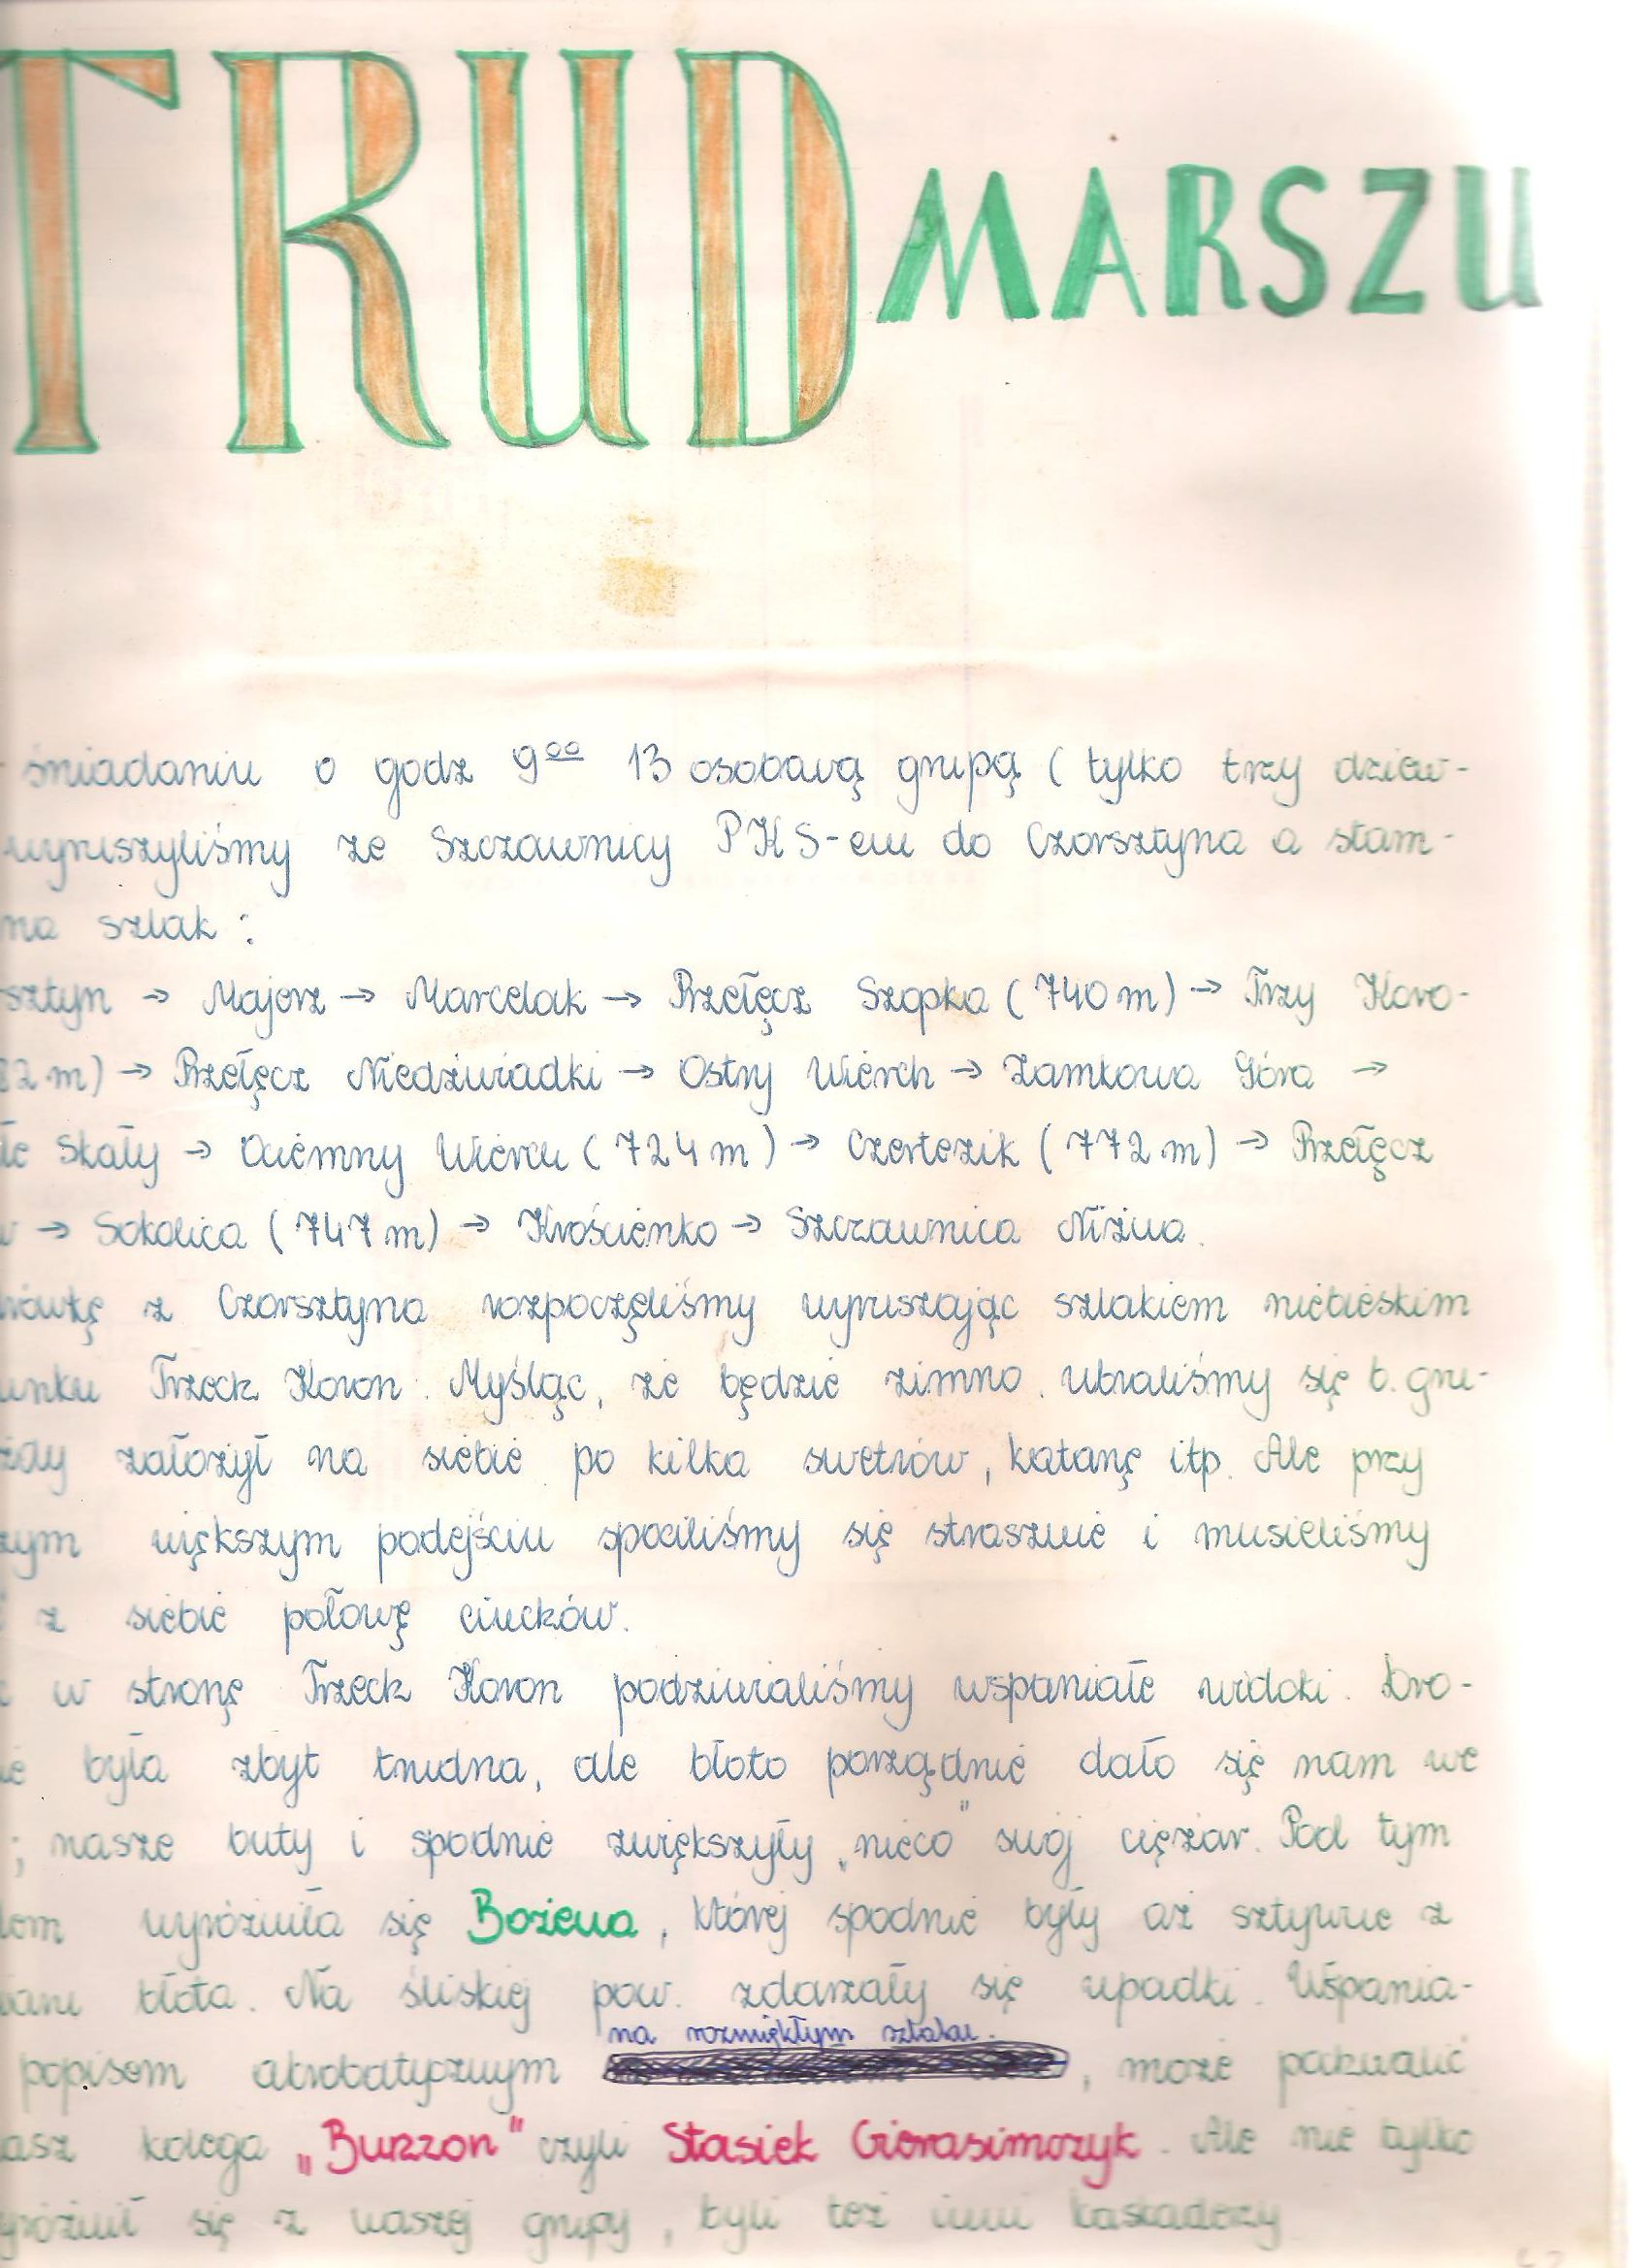 TRUD MARSZU
śniadaniu o godz 9⁰⁰ 13 osobową grupą ( tylko trzy dziew-
wyruszyliśmy ze Szczawnicy PKS-em do Czorsztyna a stam-
na szlak :
sztyn → Majerz → Marcelak → Przełęcz Szopka ( 740 m ) → Trzy Koro-
82 m) → Przełęcz Niedźwiadki → Ostry Wierch → Zamkowa Góra →
łe Skały → Ociemny Wierch ( 724 m ) → Czertezik ( 772 m) → Przełęcz
→ Sokolica ( 747 m) → Krościenko → Szczawnica Niżna.
z Czorsztyna rozpoczęliśmy wyruszając szlakiem niebieskim
unku Trzech Koron. Myśląc, że będzie zimno, ubraliśmy się b. gru-
żdy założył na siebie po kilka swetrów, katanę itp. Ale przy
zym większym podejściu spociliśmy się strasznie i musieliśmy
z siebie połowę ciuchów.
w stronę Trzech Koron podziwialiśmy wspaniałe widoki. Dro-
ie była zbyt trudna, ale błoto porządnie dało się nam we
; nasze buty i spodnie zwiększyły „nieco" swój ciężar. Pod tym
dem wyróżniła się Bożena, której spodnie były aż sztywne z
błota. Na śliskiej pow. zdarzały się upadki. Wspania-
na rozmiękłym szlaku.
popisem akrobatycznym , może pochwalić
asz kolega „Buzzon" czyli Stasiek Gierasimczyk. Ale nie tylko
yróżnił się z naszej grupy, byli też inni kaskaderzy